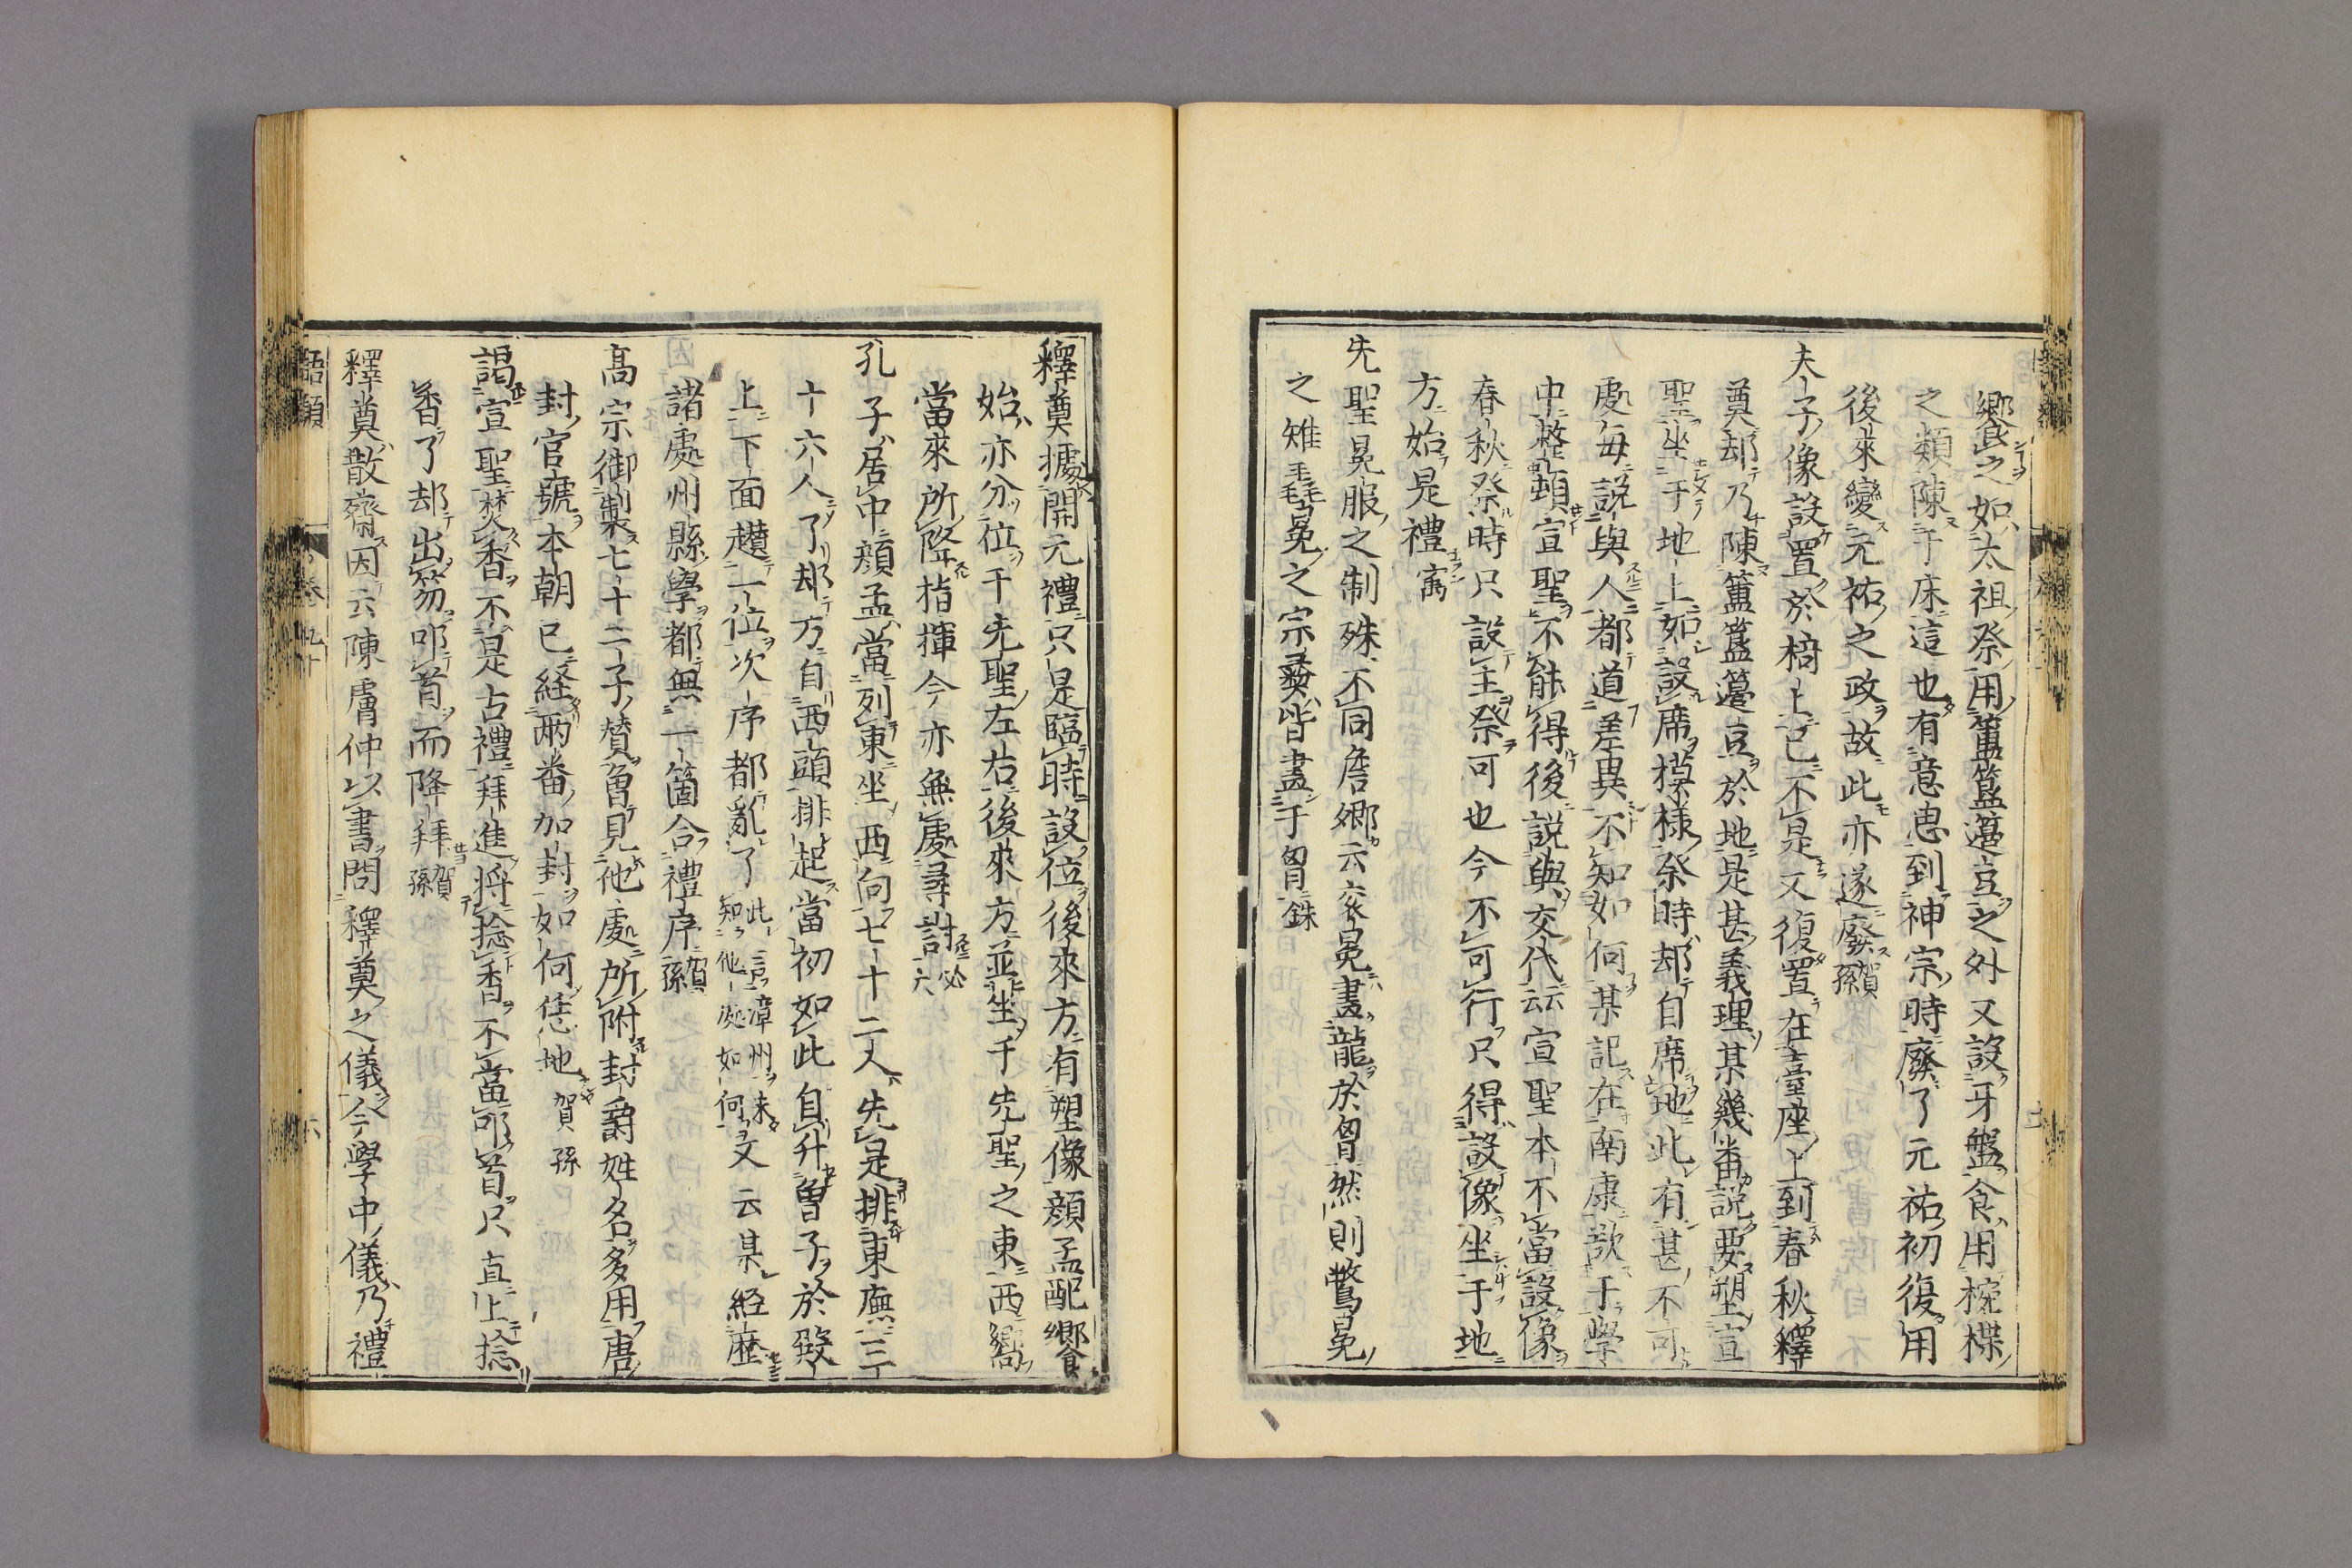 饗之如太祖祭用簠簋籩豆之外又設牙盤食用椀楪
之類陳于床這也有意思到神宗時廢了元祐初復用
後來變元祐之政故此亦遂廢賀孫
夫子像設置於椅上已不是又復置在臺座上到春秋釋
奠却乃陳簠簋籩豆於地是甚義理某幾番說要塑宣
聖坐于地上如設席模樣祭時却自席地此有甚不可
處每說與人都道差異不知如何某記在南康欲于學
中整頓宣聖不能得後說與交代云宣聖本不當設像
春秋祭時只設主祭可也今不可行只得設像坐于地
方始是禮㝢
先聖冕服之制殊不同詹卿云衮冕畫龍於胷然則鷩冕
之雉毳冕之宗彝皆畫于胷銖
釋奠據開元禮只是臨時設位後來方有塑像顔孟配饗
始亦分位于先聖左右後來方並坐于先聖之東西嚮
當來所降指揮今亦無處尋討
孔子居中顔孟當列東坐西向七十二人先是排東廡三
十六人了却方自西頭排起當初如此自升曾子於殿
上下面趲一位次序都亂了此言漳州未
知他處如何又云某經歷
諸處州縣學都無一箇合禮序賀孫
高宗御製七十二子賛曾見他處所附封爵姓名多用唐
封官號本朝已經兩番加封如何恁地賀孫
謁宣聖焚香不是古禮拜進將捻香不當叩首只直上捻
香了却出笏叩首而降拜賀孫
釋奠散齋因云陳膚仲以書問釋奠之儀今學中儀乃禮
語類 卷九十